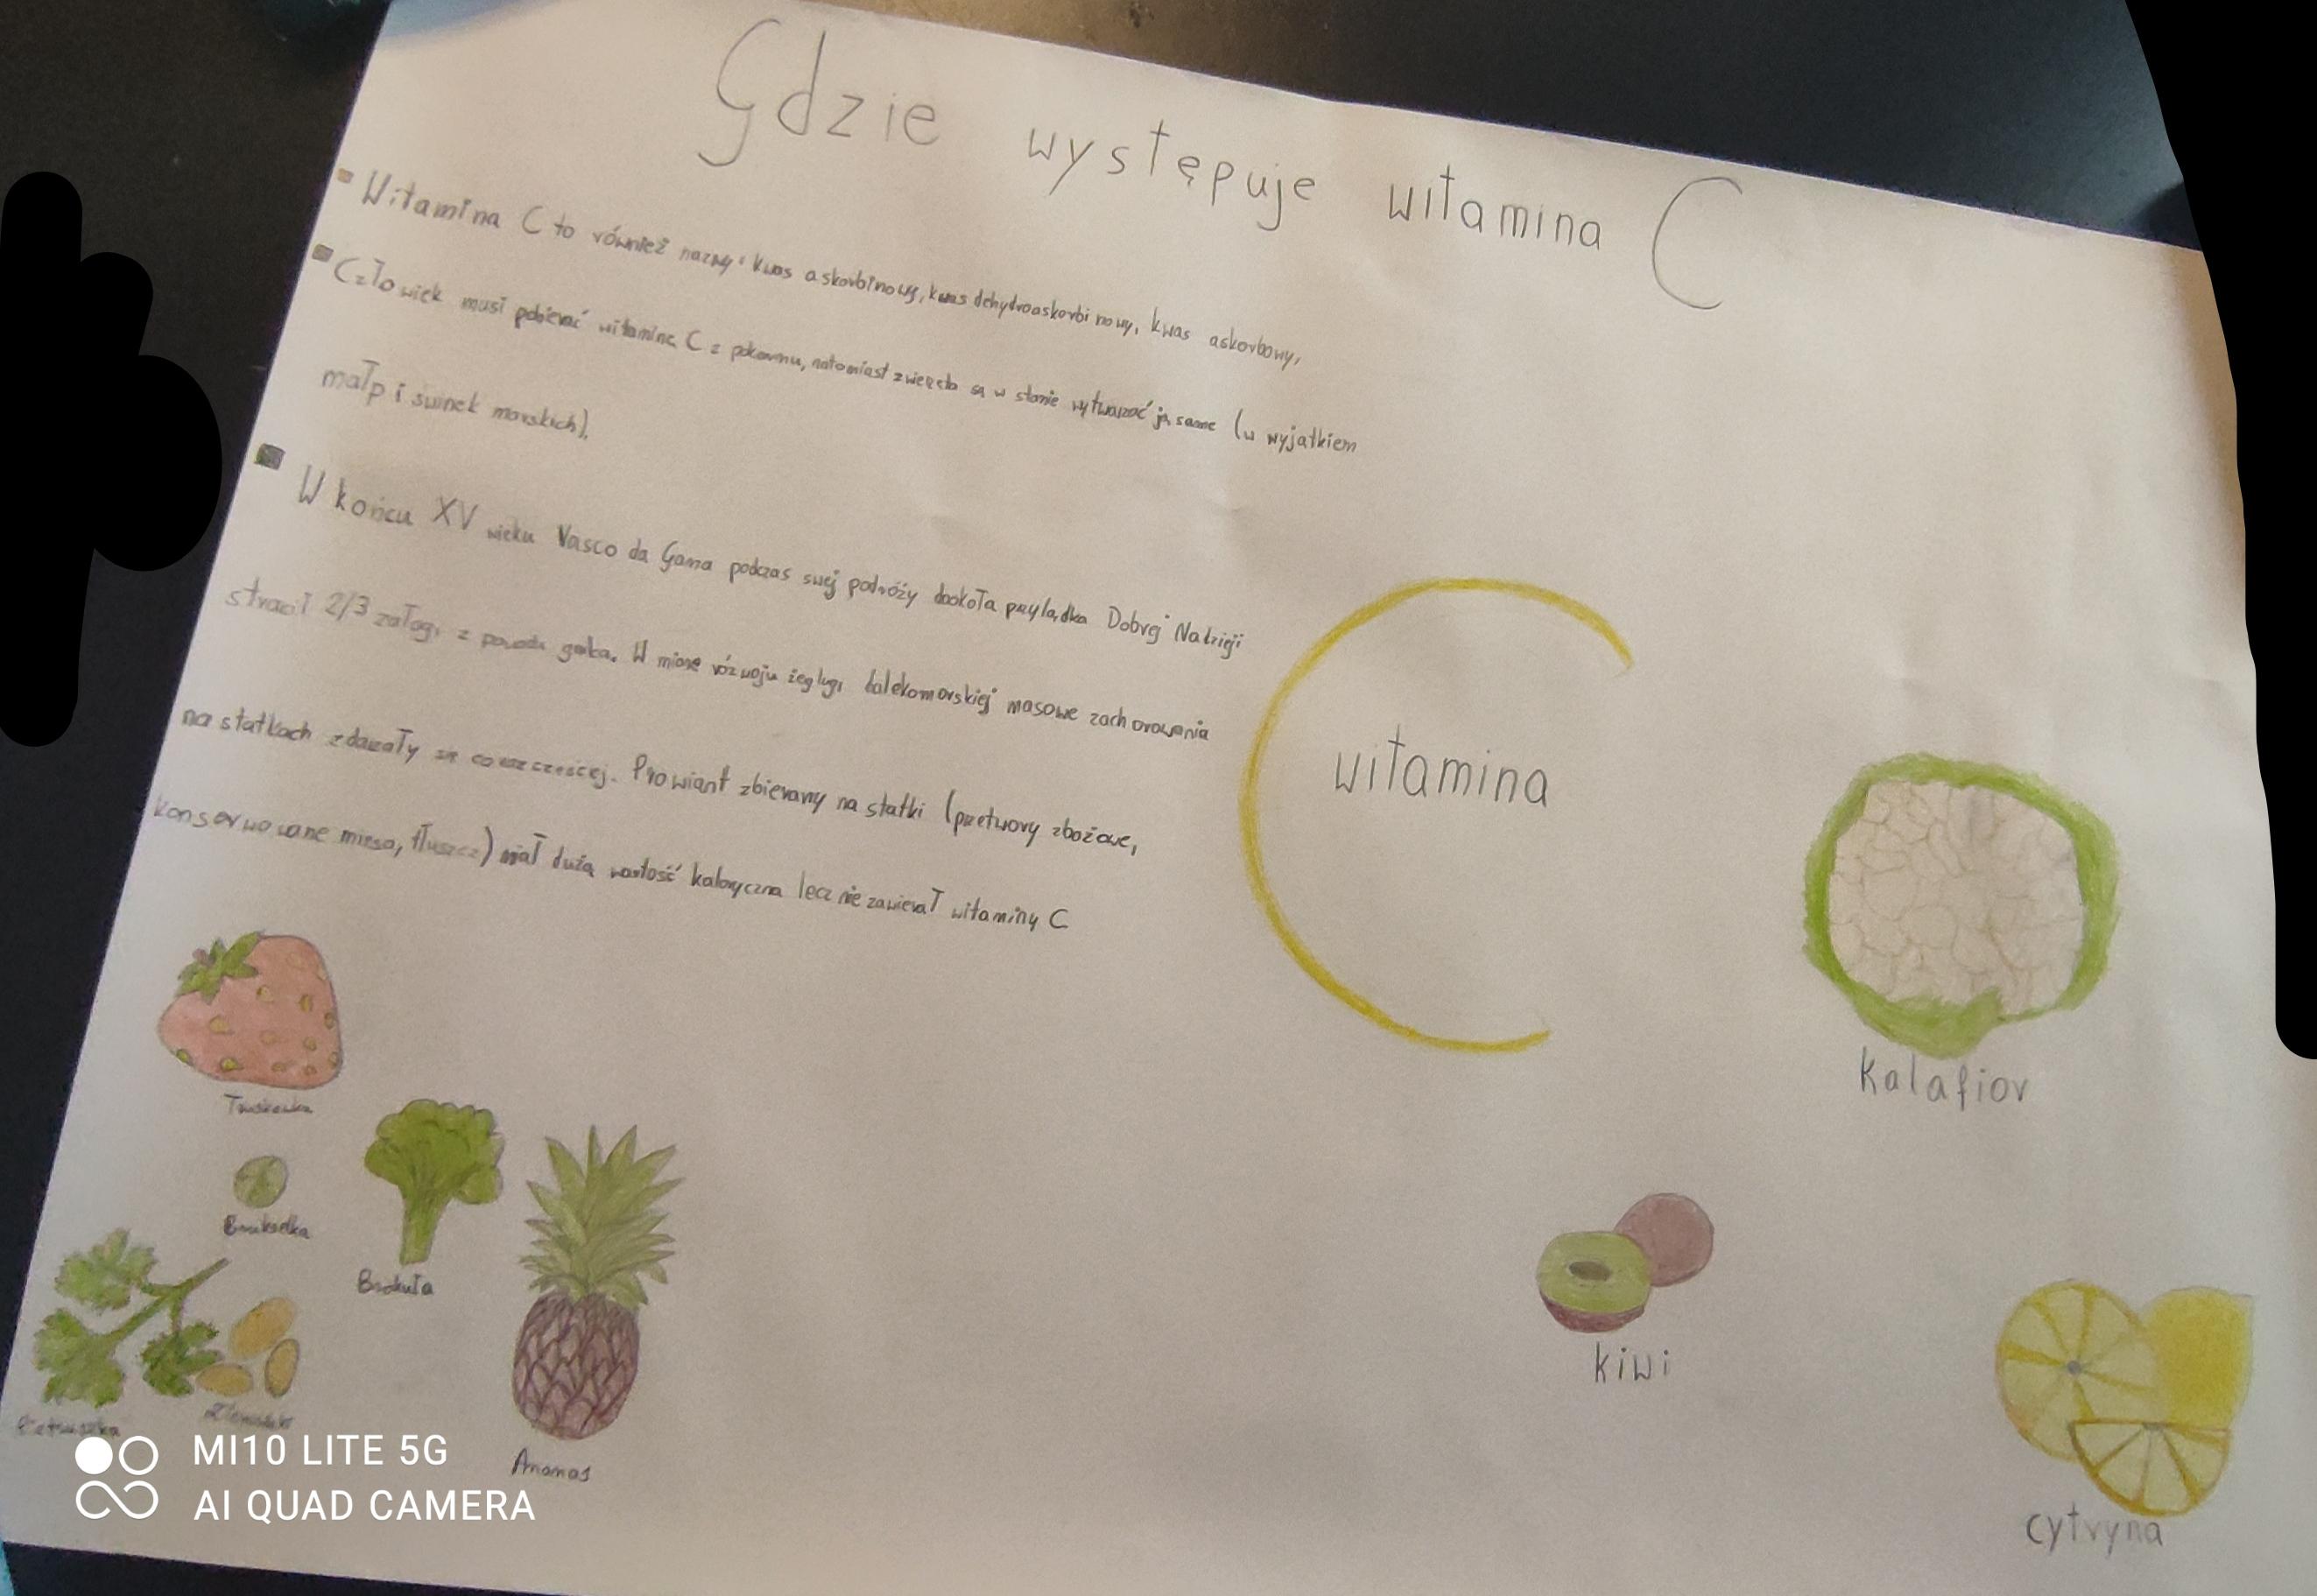 Gdzie występuje witamina C
Witamina C to również nazwy: kwas askorbinowy, kwas dehydroaskorbinowy, kwas askorbowy,
Człowiek musi pobierać witaminę C z pokarmu, natomiast zwierzęta są w stanie wytwarzać ją same (w wyjątkiem
małp i świnek morskich).
W końcu XV wieku Vasco da Gama podczas swej podróży dookoła przylądka Dobrej Nadzieji
stracił 2/3 załogi z powodu. W miarę rózwoju żeglugi dalekomorskiej masowe zachorowania
na statkach zdarzały się coraz częściej. Prowiant zbierany na statki (przetwory zbożowe,
konserwowane mięso, tłuszcz) miał dużą wartość kaloryczna lecz nie zawierał witaminy C
witamina
Kalafior
Truskawka
Brukselka
Brokuła
Pietruszka
Ziemniaki
Ananas
kiwi
cytryna
MI10 LITE 5G
AI QUAD CAMERA